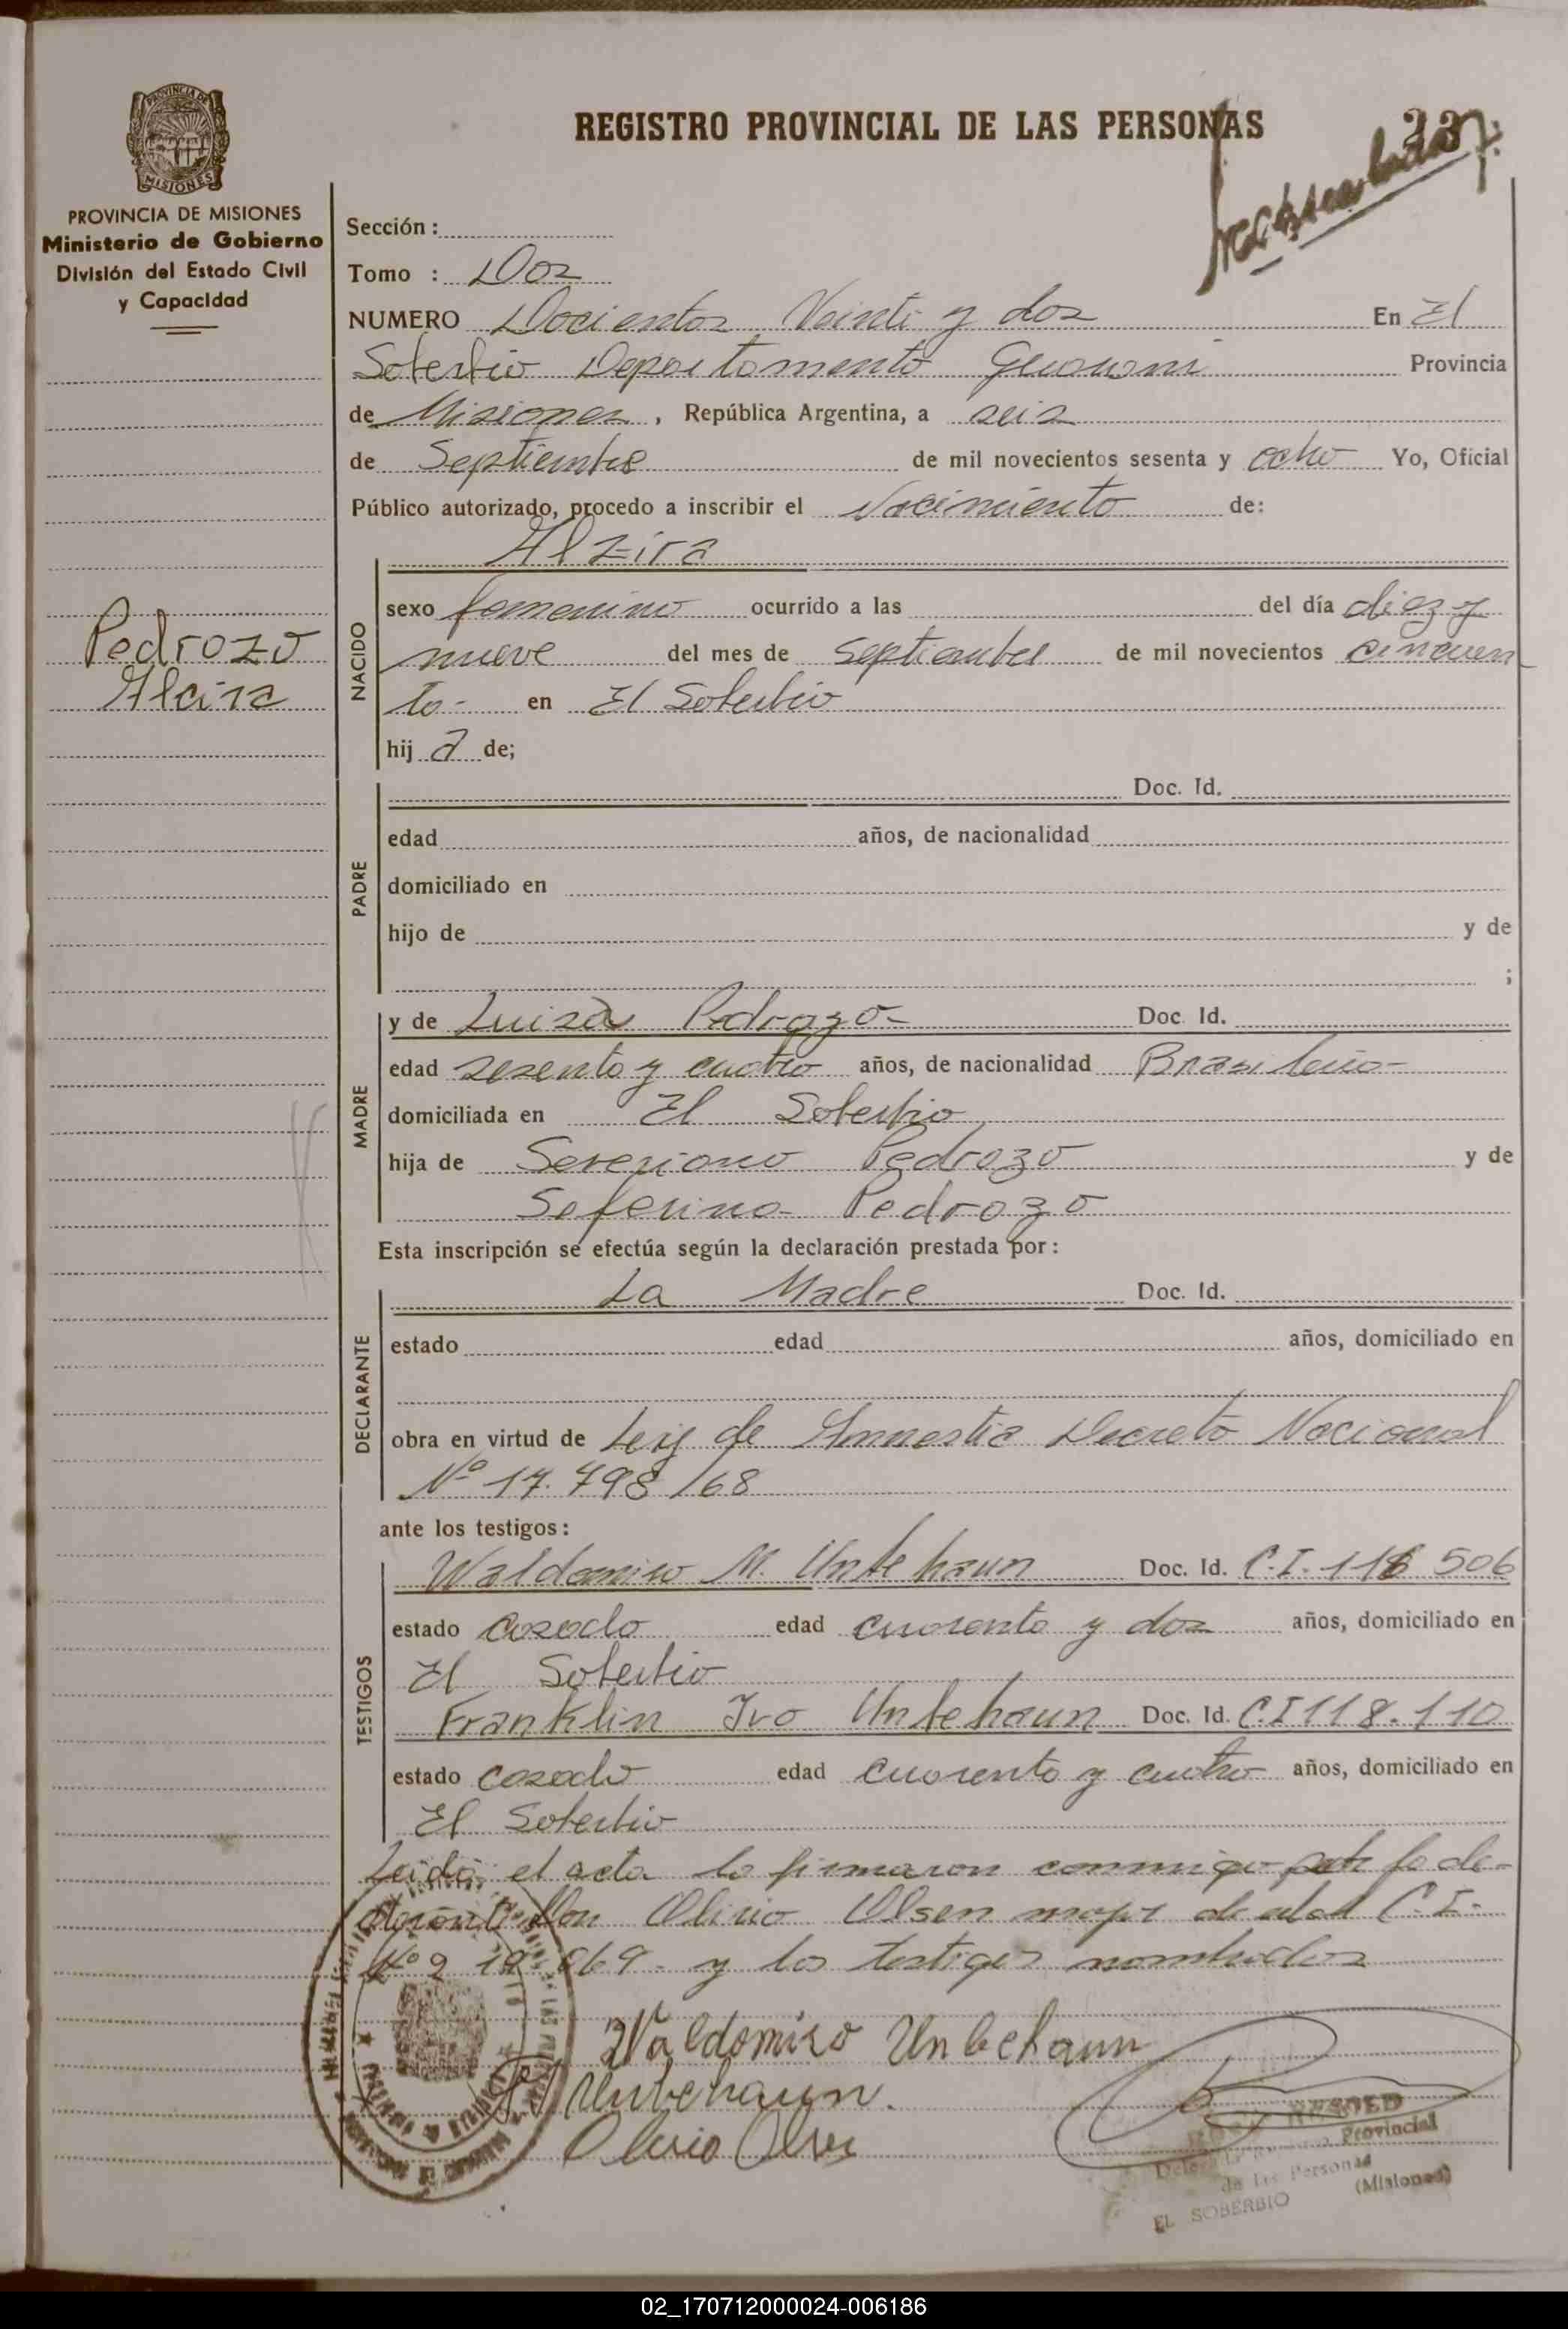 PROVINCIA DE
MISIONES
PROVINCIA DE MISIONES
Ministerio de Gobierno
División del Estado Civil
y Capacidad
REGISTRO PROVINCIAL DE LAS PERSONAS
Sección :
Tomo : Dos
NUMERO Docientos Veinti y dos En El
Soberbio Departamento Guarani Provincia
de Misiones , República Argentina, a seis
de Septiembre de mil novecientos sesenta y ocho Yo, Oficial
Público autorizado, procedo a inscribir el Nacimiento de:
Alzira
Pedrozo
Alcira
NACIDO
sexo femenino ocurrido a las del día diez y
nueve del mes de Septiembre de mil novecientos cincuen
ta- en El Soberbio
hij a de;
PADRE
Doc. Id.
edad años, de nacionalidad
domiciliado en
hijo de y de
;
MADRE
y de Luiza Pedrozo- Doc. Id.
edad sesenta y cuatro años, de nacionalidad Brasileña-
domiciliada en El Soberbio
hija de Severiano Pedrozo y de
Seferina Pedrozo
Esta inscripción se efectúa según la declaración prestada por :
DECLARANTE
La Madre Doc. Id.
estado edad años, domiciliado en
obra en virtud de Ley de Amnestia Decreto Nacional
Nº 17.798/68
ante los testigos :
TESTIGOS
Waldomiro M. Unbehaun Doc. Id. C.I. 116 506
estado casado edad cuarenta y dos años, domiciliado en
El Soberbio
Franklin Ivo Unbehaun Doc. Id. C.I 118.110
estado casado edad cuarenta y cuatro años, domiciliado en
El Soberbio
Leida el acta la firmaron conmigo por la de-
clarante Don Olirio Olsen mayor de edad C.I.
Nº 2 069 - y los testigos nombrados
Waldomiro Unbehaun
Unbehaun.
Olirio Olsen
Provincial
de las Personas
EL SOBERBIO (Misiones)
02_170712000024-006186